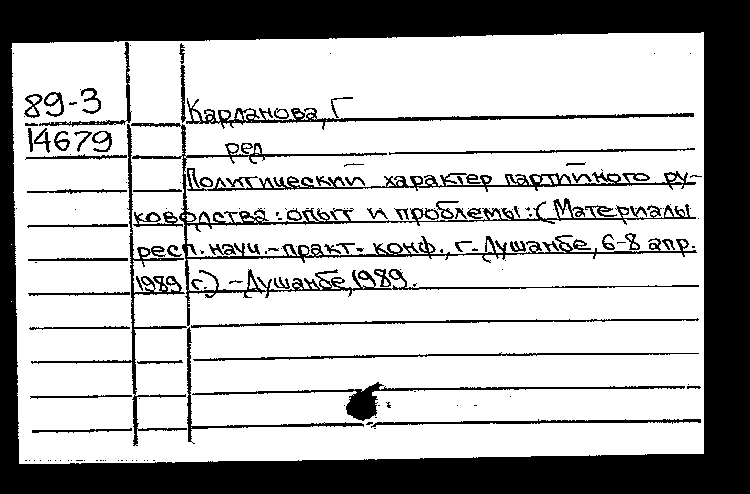 89-3
14679
Карданова, Г
ред
Политический характер партийного ру-
ководства: опыт и проблемы: (Материалы
респ. науч.-практ. конф., г. Душанбе, 6-8 апр.
1989 г.) - Душанбе, 1989.